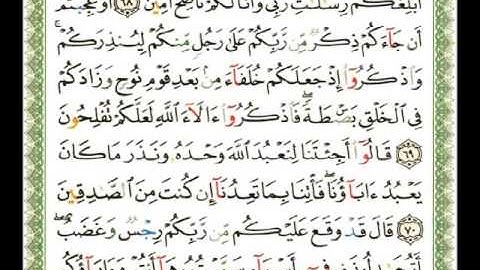 أُبَلِّغُكُمْ رِسَٰلَٰتِ رَبِّى وَأَنَا۠ لَكُمْ نَاصِحٌ أَمِينٌ ٦٨ أَوَعَجِبْتُمْ
أَن جَآءَكُمْ ذِكْرٌ مِّن رَّبِّكُمْ عَلَىٰ رَجُلٍ مِّنكُمْ لِيُنذِرَكُمْ ۚ
وَٱذْكُرُوٓا۟ إِذْ جَعَلَكُمْ خُلَفَآءَ مِنۢ بَعْدِ قَوْمِ نُوحٍ وَزَادَكُمْ
فِى ٱلْخَلْقِ بَصْۜطَةً ۖ فَٱذْكُرُوٓا۟ ءَالَآءَ ٱللَّهِ لَعَلَّكُمْ تُفْلِحُونَ
٦٩ قَالُوٓا۟ أَجِئْتَنَا لِنَعْبُدَ ٱللَّهَ وَحْدَهُۥ وَنَذَرَ مَا كَانَ
يَعْبُدُ ءَابَآؤُنَا ۖ فَأْتِنَا بِمَا تَعِدُنَآ إِن كُنتَ مِنَ ٱلصَّٰدِقِينَ
٧٠ قَالَ قَدْ وَقَعَ عَلَيْكُم مِّن رَّبِّكُمْ رِجْسٌ وَغَضَبٌ ۖ